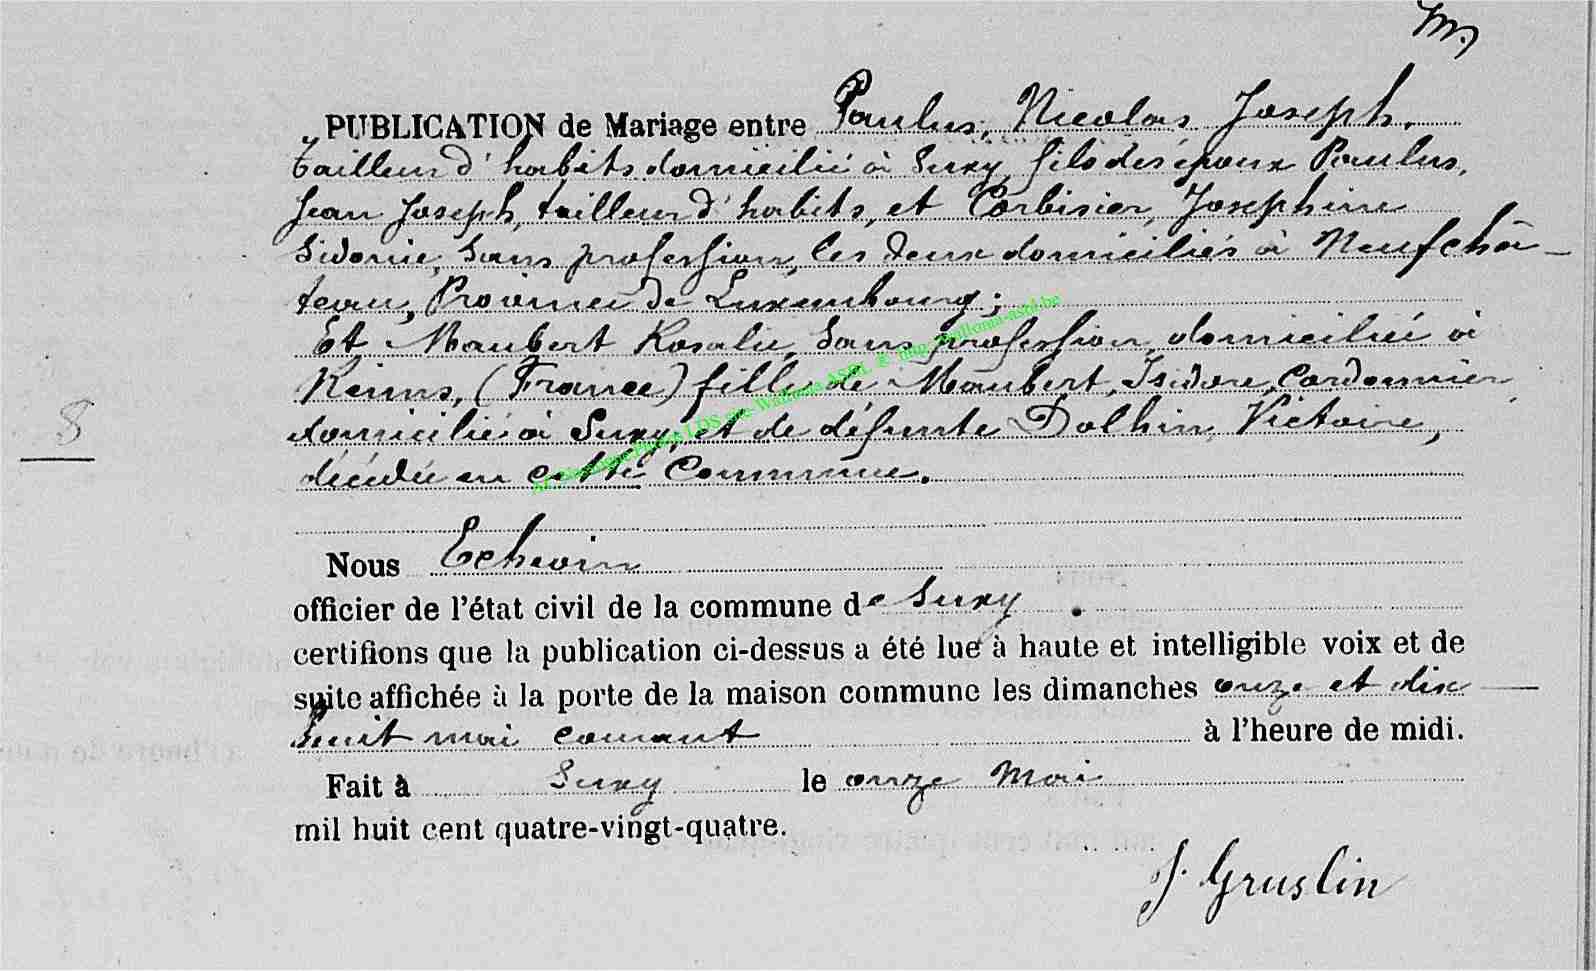 PUBLICATION de Mariage entre Paulus, Nicolas Joseph,
tailleur d'habits domicilié à Suxy, fils des époux Paulus,
Jean Joseph, tailleur d'habits, et Corbisier, Josephine
Sidonie, Sans profession, les deux domiciliés à Neufchâ-
teau, Province de Luxembourg;
Et Maubert Rosalie, Sans profession, domiciliée à
Reims, (France) fille de Maubert, Isidore, Cordonnier,
domicilié à Suxy, et de défunte Dolhin, Victoire,
décédée en cette Commune.
8
Nous Echevin
officier de l'état civil de la commune de Suxy.
certifions que la publication ci-dessus a été lue à haute et intelligible voix et de
suite affichée à la porte de la maison commune les dimanches onze et dix
huit mai courant à l'heure de midi.
Fait à Suxy le onze Mai
mil huit cent quatre-vingt-quatre.
J. Gruslin